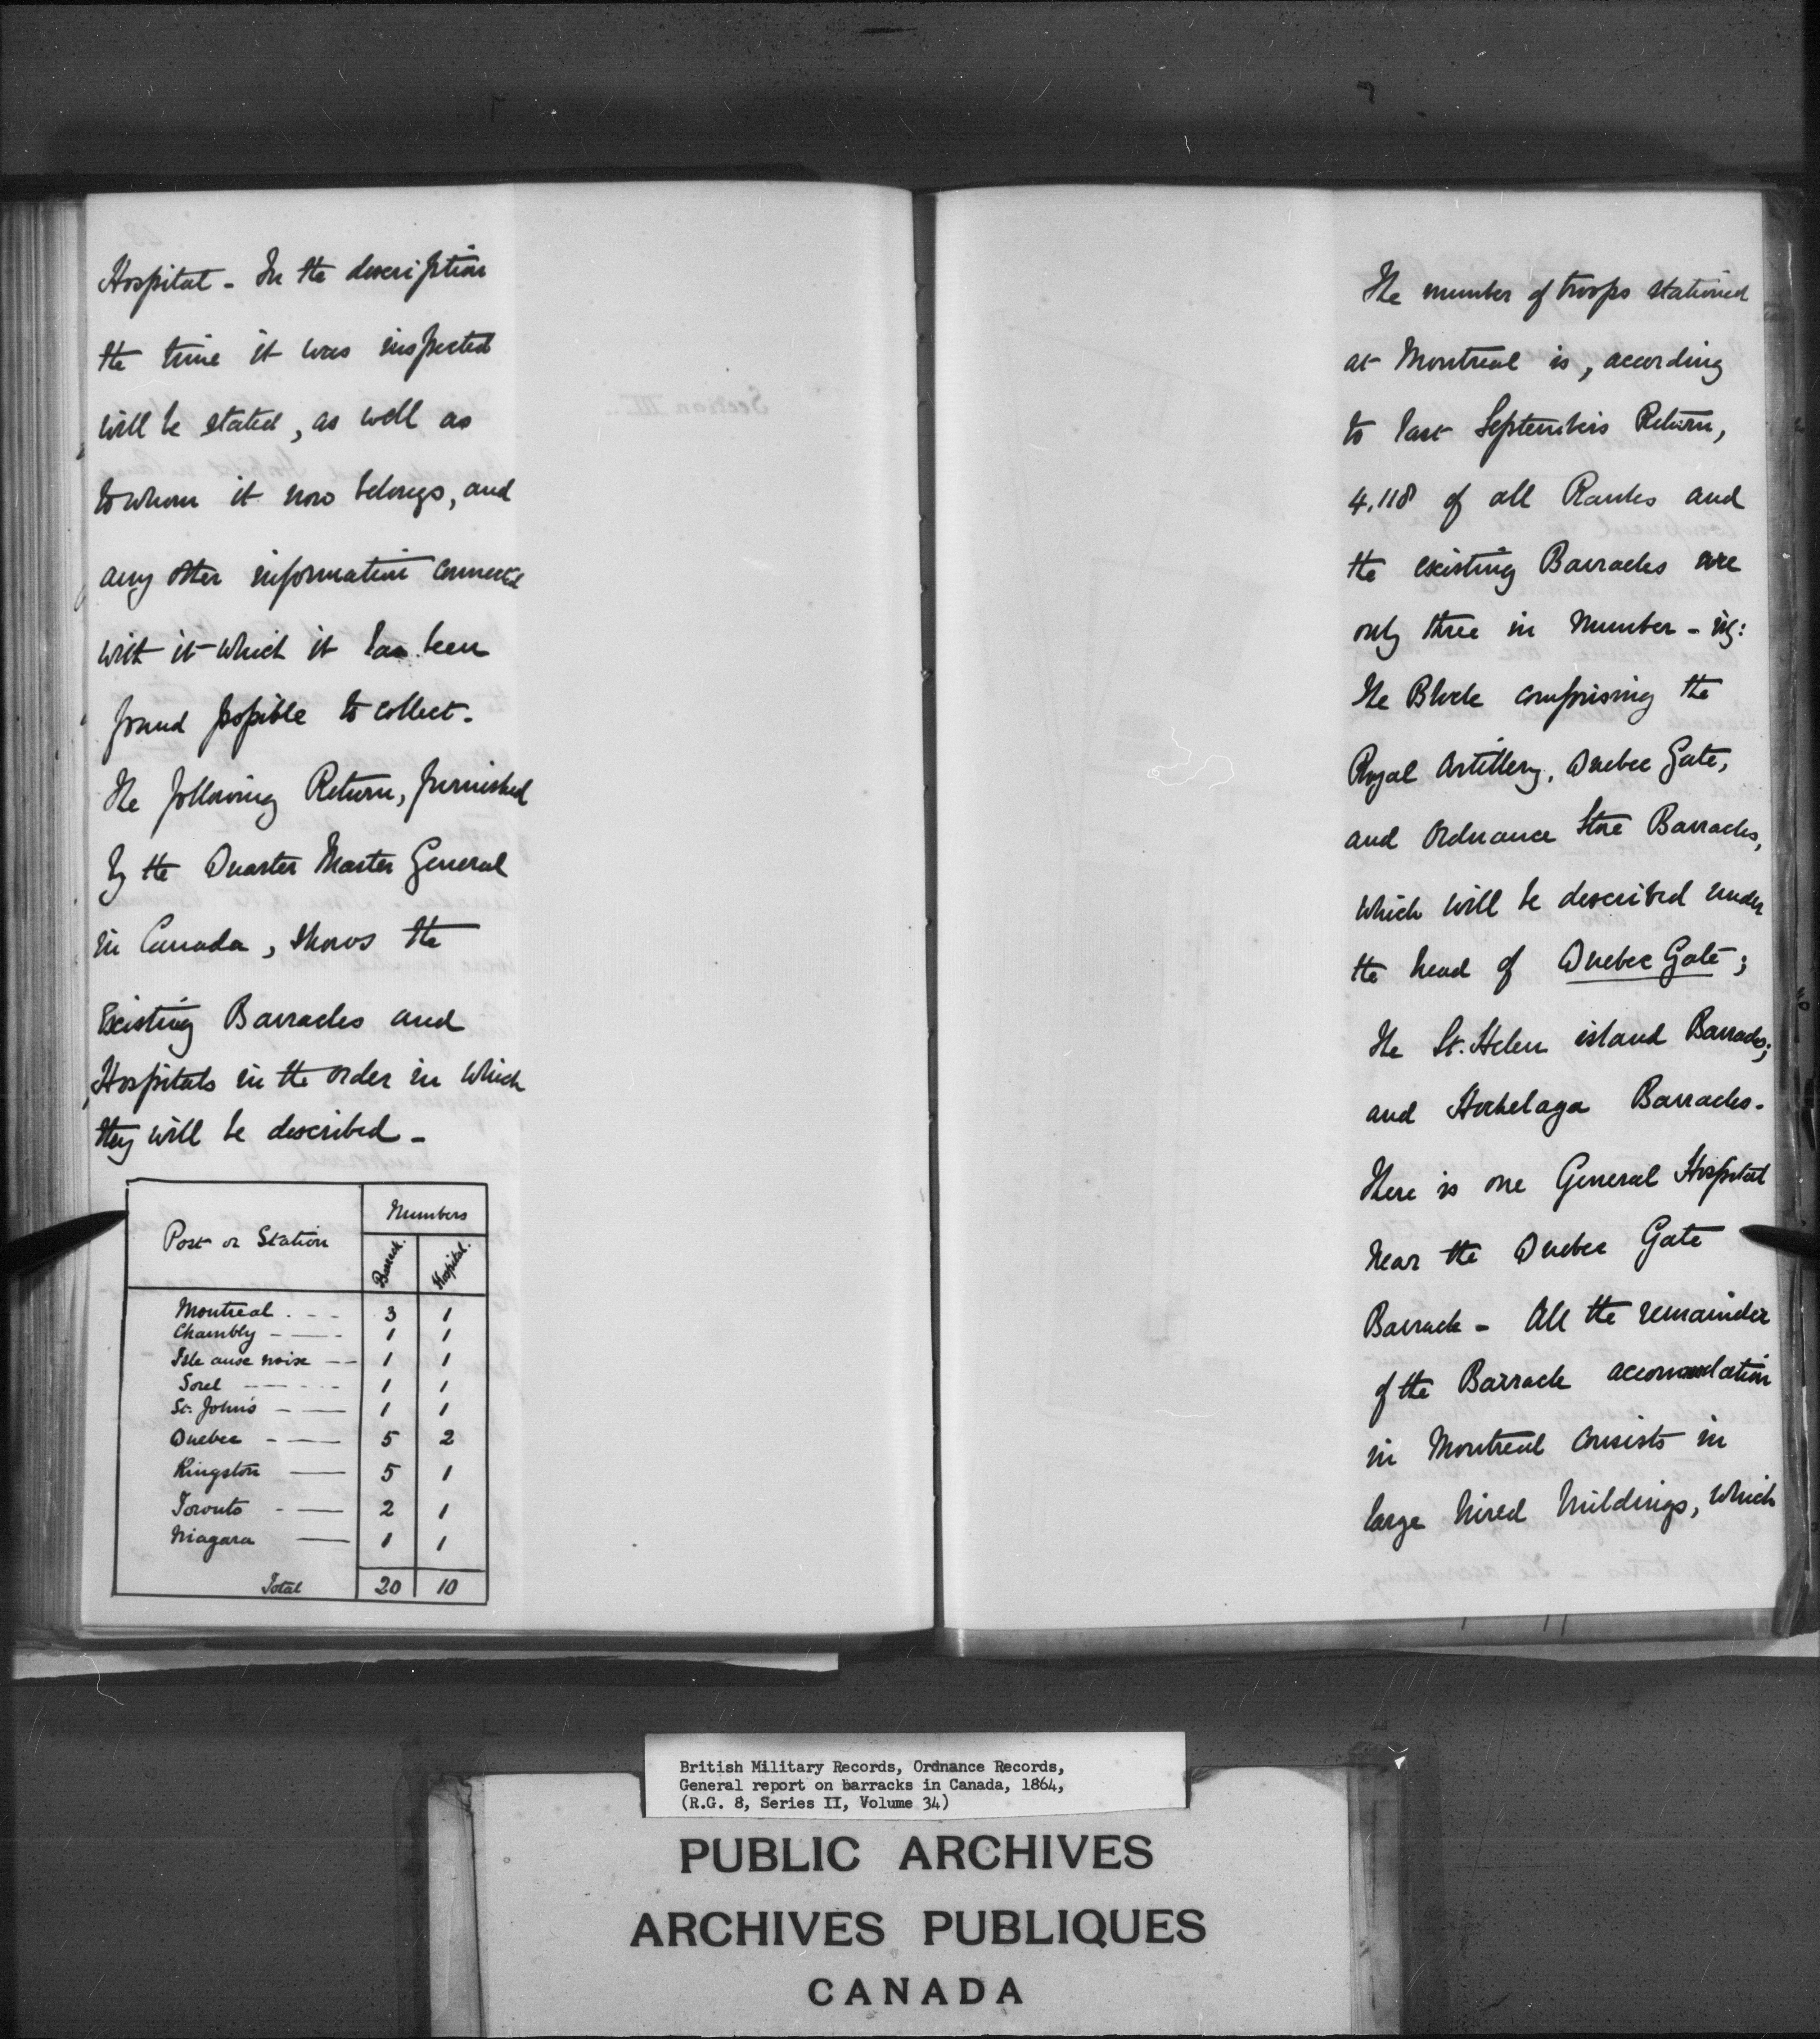 Hospital - In the description
the time it was inspected
will be stated, as well as
to whom it now belongs, and
any other information connected
with it which it has been
found possible to collect.
The following Return, furnished
by the Quarter Master General
in Canada, shows the
Existing Barracks and
Hospitals in the order in which
they will be described -
Post or Station Numbers
Barrack. Hospital.
Montreal 3 1
Chambly 1 1
Isle ause noix 1 1
Sorel 1 1
St. John's 1 1
Quebec 5 2
Kingston 5 1
Toronto 2 1
Niagara 1 1
Total 20 10
Section III
The number of troops stationed
at Montreal is, according
to last September's Return,
4,118 of all Ranks and
the existing Barracks are
only three in Number - viz:
The Block comprising the
Royal Artillery, Quebec Gate,
and Ordnance Store Barracks,
which will be described under
the head of Quebec Gate;
The St. Helen island Barracks;
and Hochelaga Barracks.
There is one General Hospital
near the Quebec Gate
Barrack - All the remainder
of the Barrack accommodation
in Montreal consists in
large hired buildings, which
British Military Records, Ordnance Records,
General report on barracks in Canada, 1864,
(R.G. 8, Series II, Volume 34)
PUBLIC ARCHIVES
ARCHIVES PUBLIQUES
CANADA